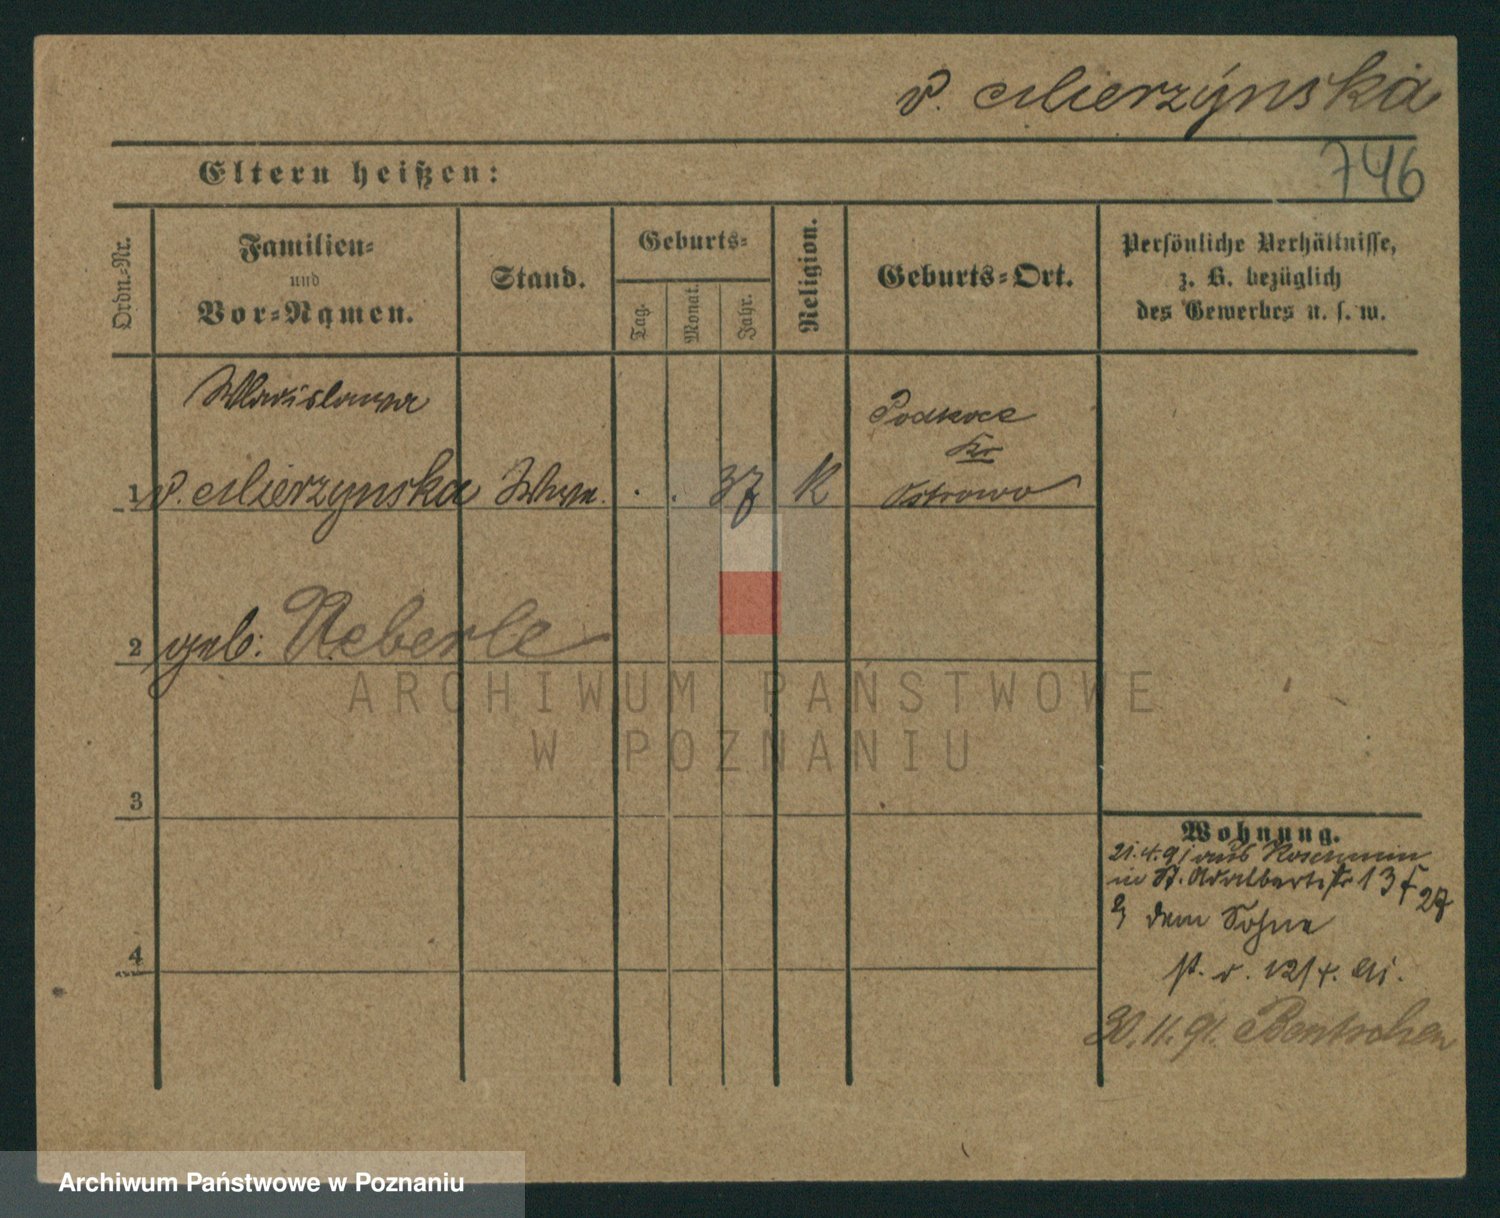 v. Mierzýnska
746
Eltern heißen:
Ordn.-Nr.
Familien-
und
Vor-Namen.
Stand.
Geburts-
Tag.
Monat.
Jahr.
Religion.
Geburts-Ort.
Persönliche Verhältnisse,
z. B. bezüglich
des Gewerbes u. s. w.
Wladislawa
Kr
1 v. Mierzynska Wwe. . . 37 K Ostrowo
2 geb:
ARCHIWUM PAŃSTWOWE
W POZNANIU
3
4
Wohnung.
21.4.91 aus Koschmin
in St. Adalbertstr 13 F 27
b dem Sohne
30.11.91. Bentschen
Archiwum Państwowe w Poznaniu